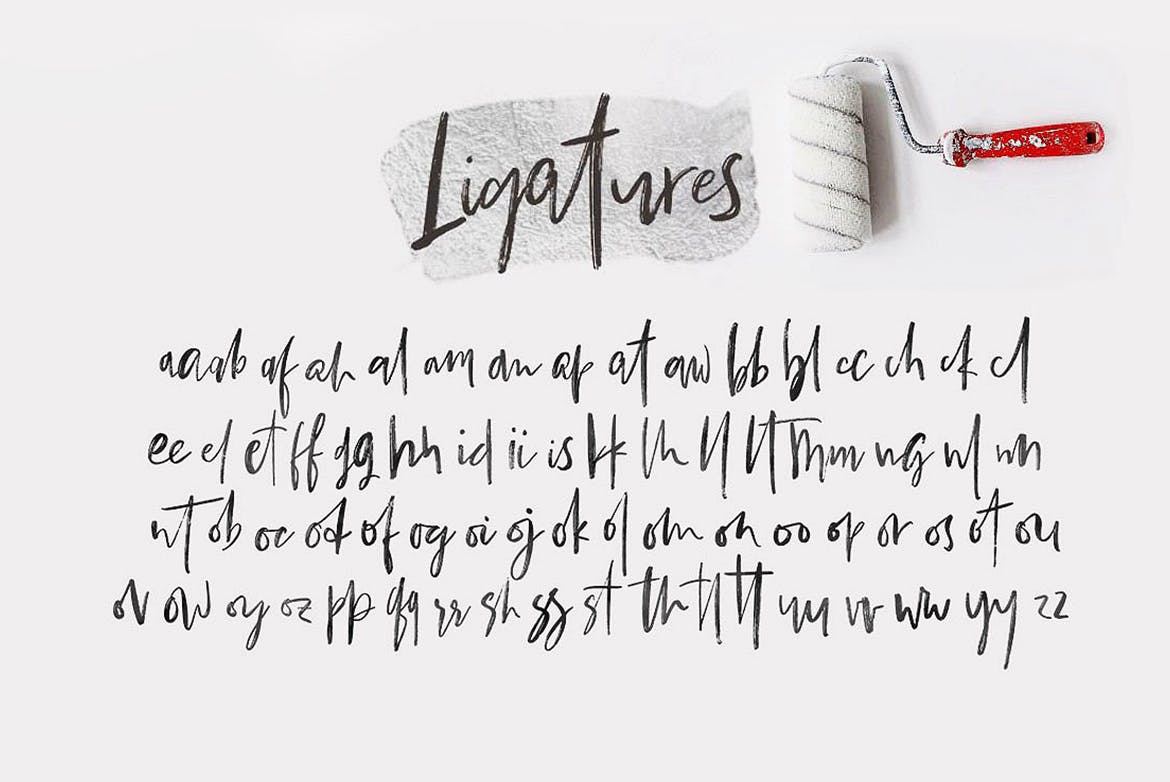 Ligatures
aa ab af ah al am an ap at aw bb bl cc ch ck cl
ee el et ff gg hh id ii is kk lh ll lt mm ng nl nn
nt ob oc od of og oi oj ok ol om on oo op or os ot ou
ov ow oy oz pp qq rr sh ss st th tl tt uu vv ww yy zz